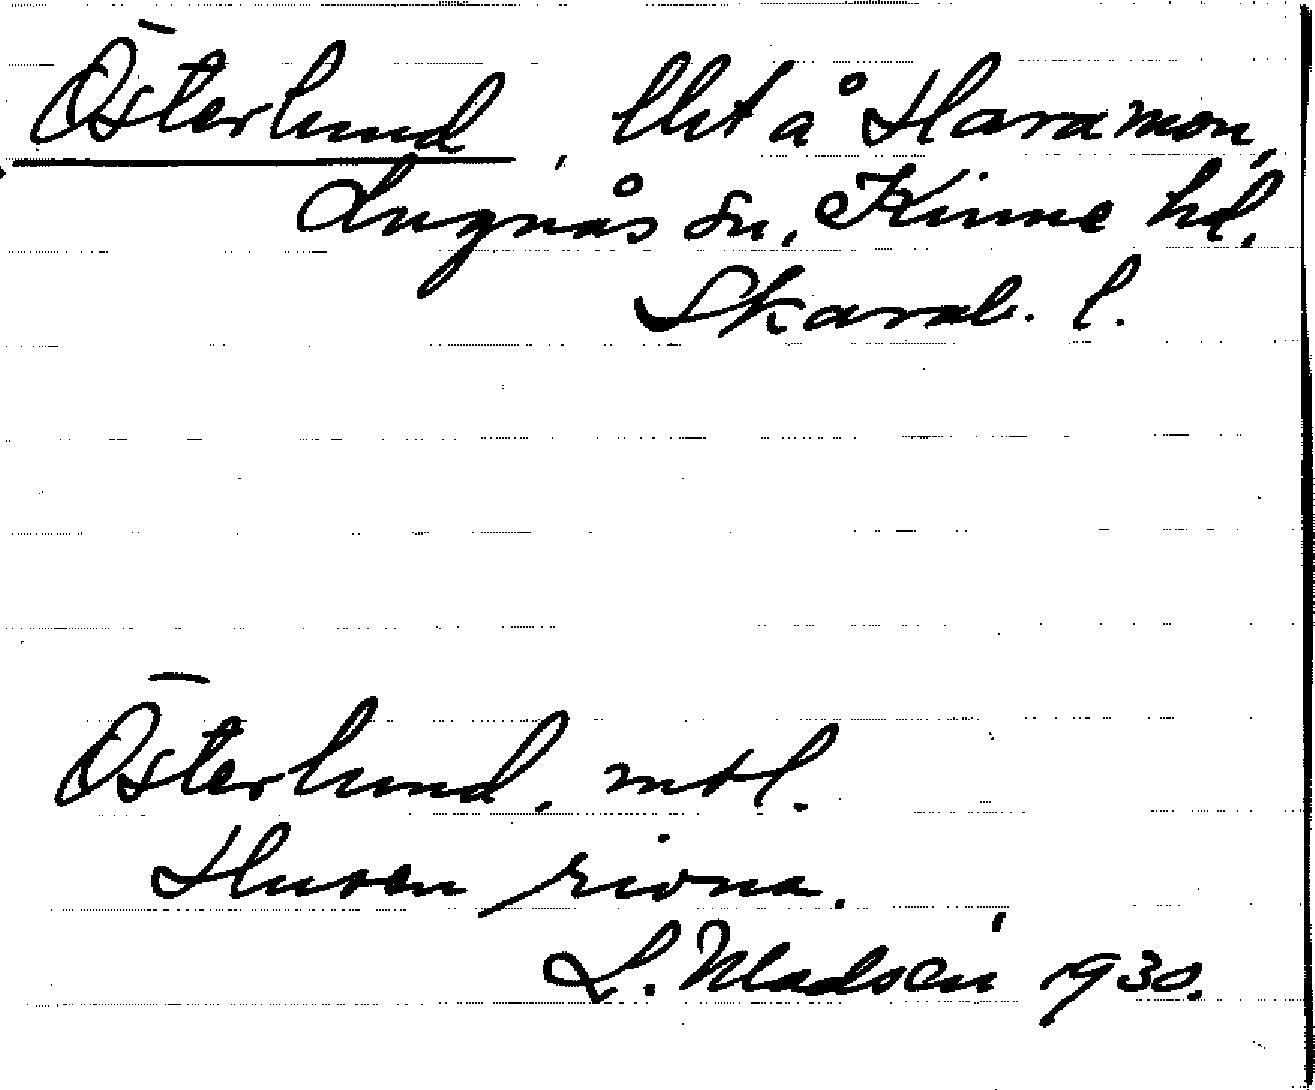 Österlund, llht å Haramon,
Lugnås sn, Kinne hd,
Skarab. l.
Österlund, mtl.
Husen rivna.
L. Madsén 1930.